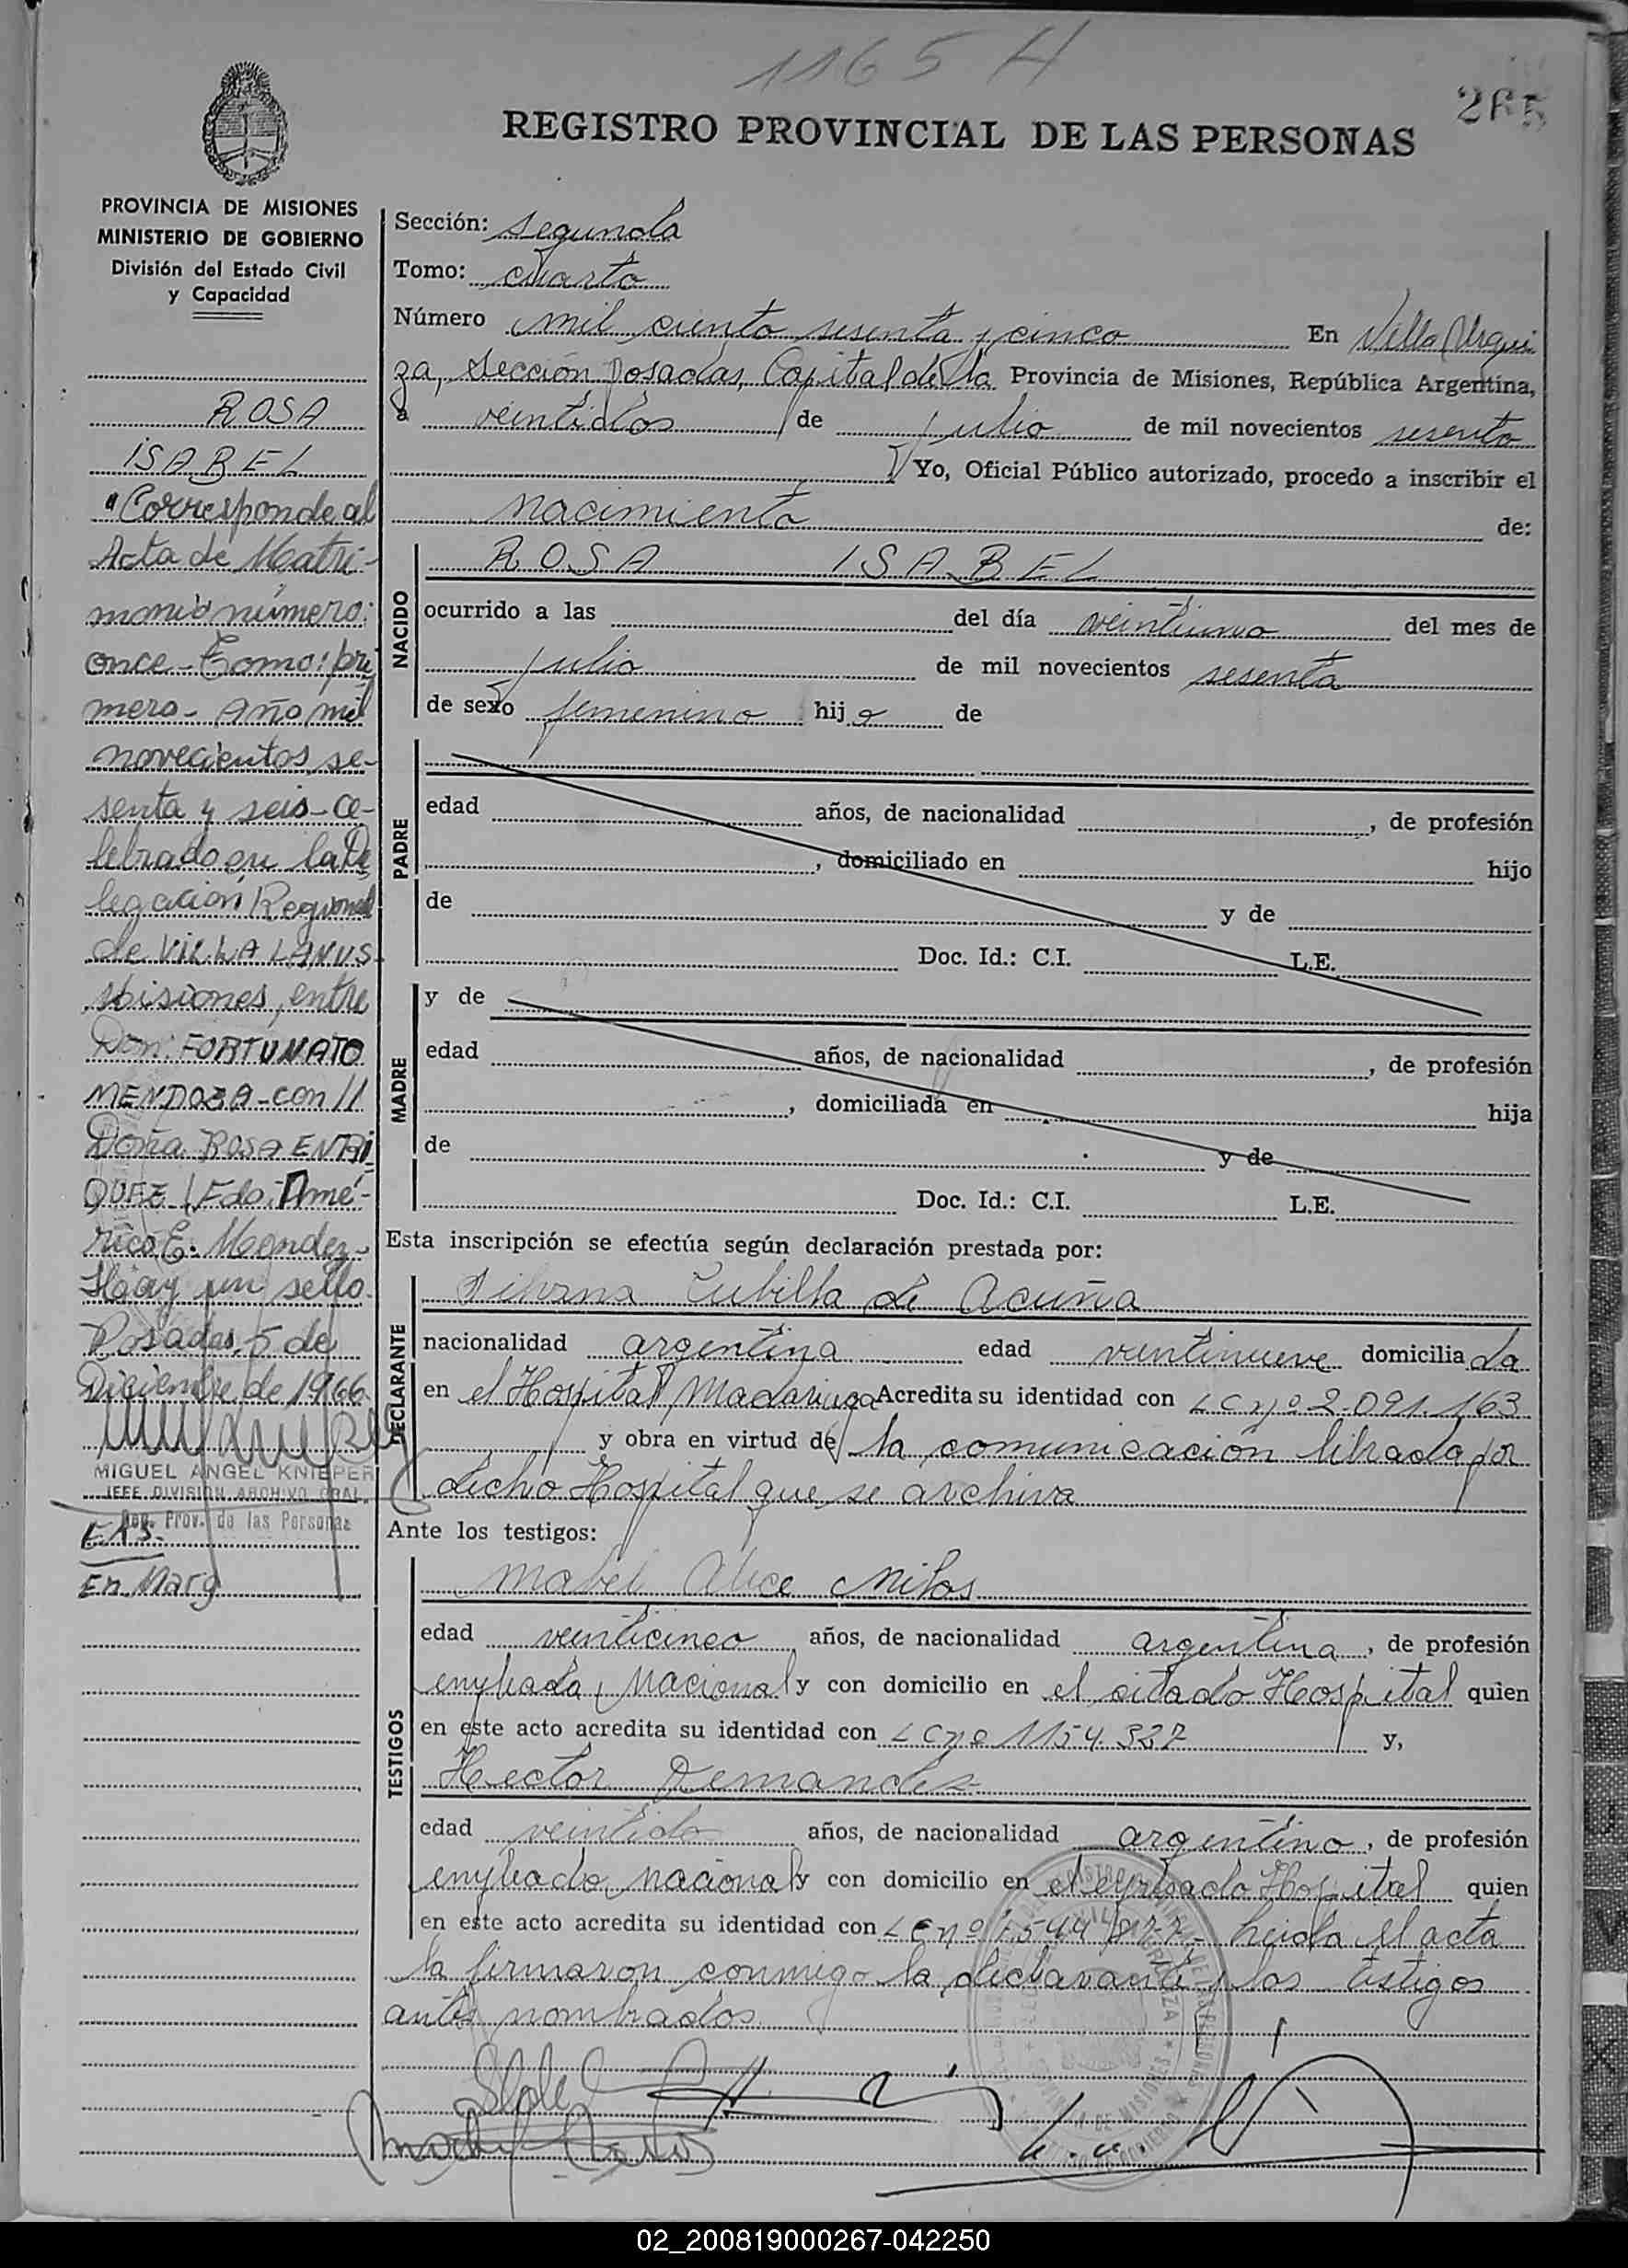 1165 H
265
REGISTRO PROVINCIAL DE LAS PERSONAS
PROVINCIA DE MISIONES
MINISTERIO DE GOBIERNO
División del Estado Civil
y Capacidad
ROSA
ISABEL
"Corresponde al
Acta de Matri-
monio número:
once - Tomo: pri
mero - Año mil
novecientos se-
senta y seis - ce-
lebrado en la De
legación Regional
de VILLA LANUS
Misiones, entre
Don: FORTUNATO
MENDOZA - con //
Doña ROSA ENRI
QUEZ / Fdo: Amé-
rico E. Mendez -
Hay un sello
Posadas, 5 de
Diciembre de 1966
MIGUEL ANGEL KNIEPER
JEFE DIVISION ARCHIVO GRAL.
Reg. Prov. de las Personas
En Marg
Sección: segunda
Tomo: cuarto
Número mil ciento sesenta y cinco En Villa Urqui
za, Sección Posadas, Capital de la Provincia de Misiones, República Argentina,
a veintidos de julio de mil novecientos sesenta
Yo, Oficial Público autorizado, procedo a inscribir el
nacimiento de:
NACIDO
ROSA ISABEL
ocurrido a las del día veintiuno del mes de
julio de mil novecientos sesenta
de sexo femenino hij a de
PADRE
edad años, de nacionalidad , de profesión
, domiciliado en hijo
de y de
Doc. Id.: C.I. L.E.
MADRE
y de
edad años, de nacionalidad , de profesión
, domiciliada en hija
de y de
Doc. Id.: C.I. L.E.
Esta inscripción se efectúa según declaración prestada por:
DECLARANTE
Cubilla de Acuña
nacionalidad argentina edad veintinueve domicilia da
en el Hospital Madariaga Acredita su identidad con LC nº 2.091.163
y obra en virtud de la comunicación librada por
dicho Hospital que se archiva
Ante los testigos:
TESTIGOS
Mabel Alice Milos
edad veinticinco años, de nacionalidad argentina, de profesión
empleada Nacional y con domicilio en el citado Hospital quien
en este acto acredita su identidad con LC nº 1154.327 y,
Hector
edad veintido años, de nacionalidad argentino, de profesión
empleado nacional y con domicilio en el expresado Hospital quien
en este acto acredita su identidad con LE nº leida el acta
la firmaron conmigo la declarante y los testigos
antes nombrados
02_200819000267-042250